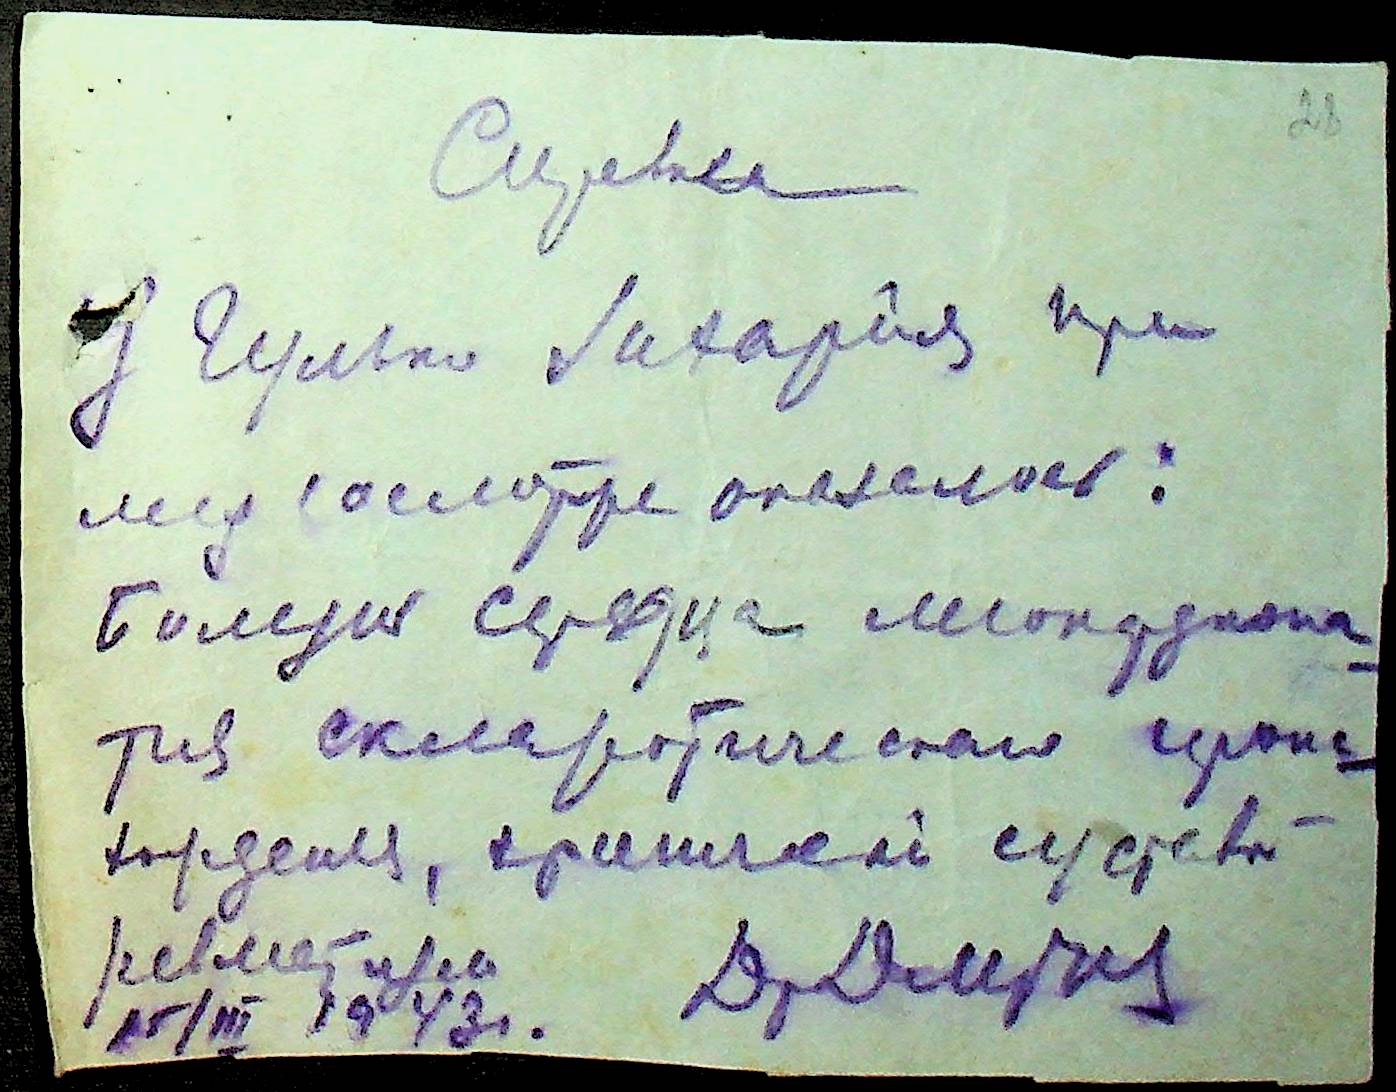 28
Справка
У Гулько Захарія при
мед осмотре оказалось:
Болезнь сердца миокардиопа-
тия склеротического проис-
хордения, хроническій суставн
ревматизм
15/III 1943 г. Др Дмутриев